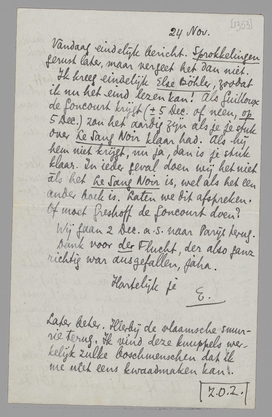 [1353]
24 Nov.
Vandaag eindelijk bericht. Sprokkelingen
gerust later, maar vergeet het dan niet.
Ik kreeg eindelijk Else Böhler, zoodat
ik nu het eind lezen kan! Als Guilloux
de Goncourt krijgt (± 5 Dec. of neen, op
5 Dec.) zou het aardig zijn als je je stuk
over Le Sang Noir klaar had. Als hij
hem niet krijgt, nu ja, dan is je stuk
klaar. In ieder geval doen wij het niet
als het Le Sang Noir is, wel als het een
ander boek is. Laten we dit afspreken.
Of moet Greshoff de Goncourt doen?
Wij gaan 2 Dec. a.s. naar Parijs terug.
Dank voor der Flucht, der also ganz
richtig war ausgefallen, jaha.
Hartelijk je
E.
Later beter. Hierbij de vlaamsche
terug. Ik vind deze knuppels wer-
kelijk zulke boschmenschen dat ik
me niet eens kwaadmaken kan.
Z.O.Z.